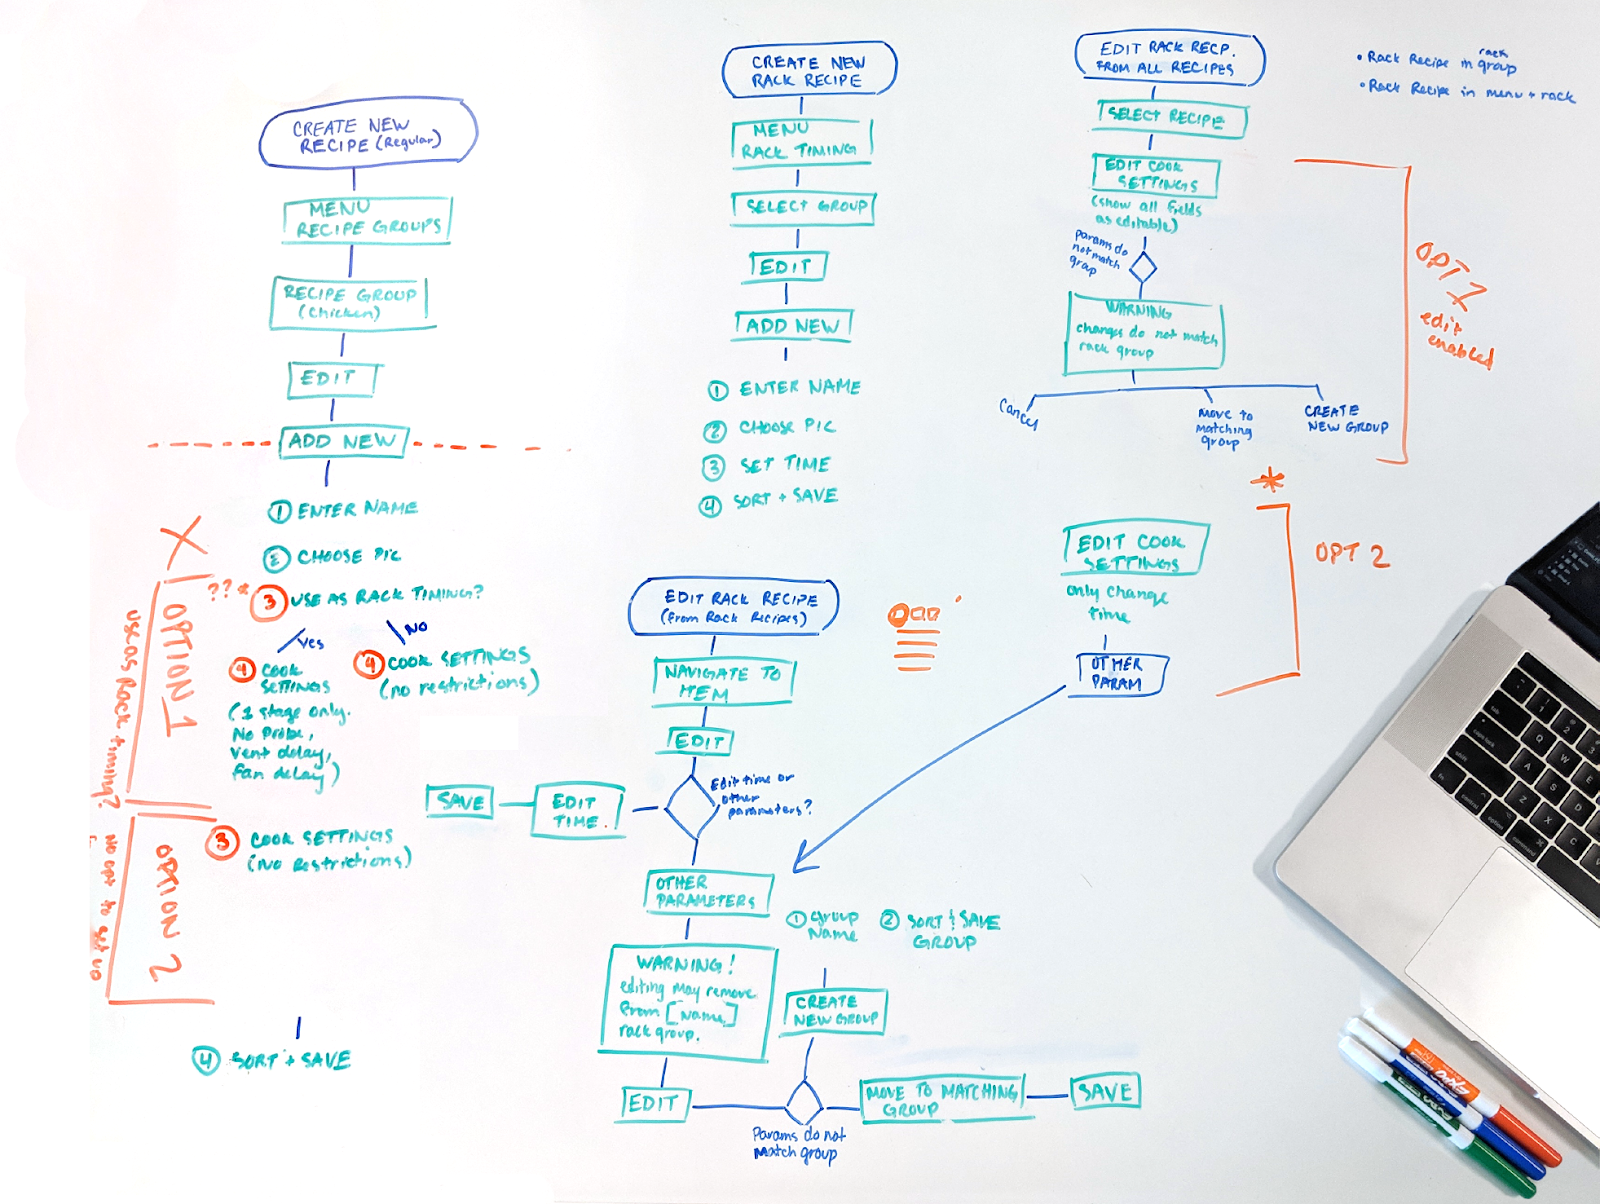 CREATE NEW
RECIPE (Regular)
MENU
RECIPE GROUPS
RECIPE GROUP
(Chicken)
EDIT
ADD NEW
1 ENTER NAME
2 CHOOSE PIC
??*
3 USE AS RACK TIMING?
Yes
NO
4 COOK
SETTINGS
(1 stage only.
No Probe,
vent delay,
fan delay)
4 COOK SETTINGS
(no restrictions)
X
OPTION 1
use as Rack timing?
3 COOK SETTINGS
(No Restrictions)
OPTION 2
No opt to set up
4 SORT + SAVE
CREATE NEW
RACK RECIPE
MENU
RACK TIMING
SELECT GROUP
EDIT
ADD NEW
1 ENTER NAME
2 CHOOSE PIC
3 SET TIME
4 SORT + SAVE
EDIT RACK RECIPE
(from Rack Recipes)
NAVIGATE TO
ITEM
EDIT
Edit time or
other
parameters?
EDIT
TIME.
SAVE
OTHER
PARAMETERS
WARNING!
editing may remove
from [Name]
rack group.
EDIT
Params do not
Match group
CREATE
NEW GROUP
1 Group
Name
2 SORT & SAVE
GROUP
MOVE TO MATCHING
GROUP
SAVE
EDIT RACK RECP.
FROM ALL RECIPES
SELECT RECIPE
EDIT COOK
SETTINGS
(show all fields
as editable)
params do
not match
group
WARNING
changes do not match
rack group
Cancel
Move to
matching
group
CREATE
NEW GROUP
OPT 1
edit
enabled
*
EDIT COOK
SETTINGS
only change
time
OTHER
PARAM
OPT 2
• Rack Recipe in rack group
• Rack Recipe in menu + rack
EXPO